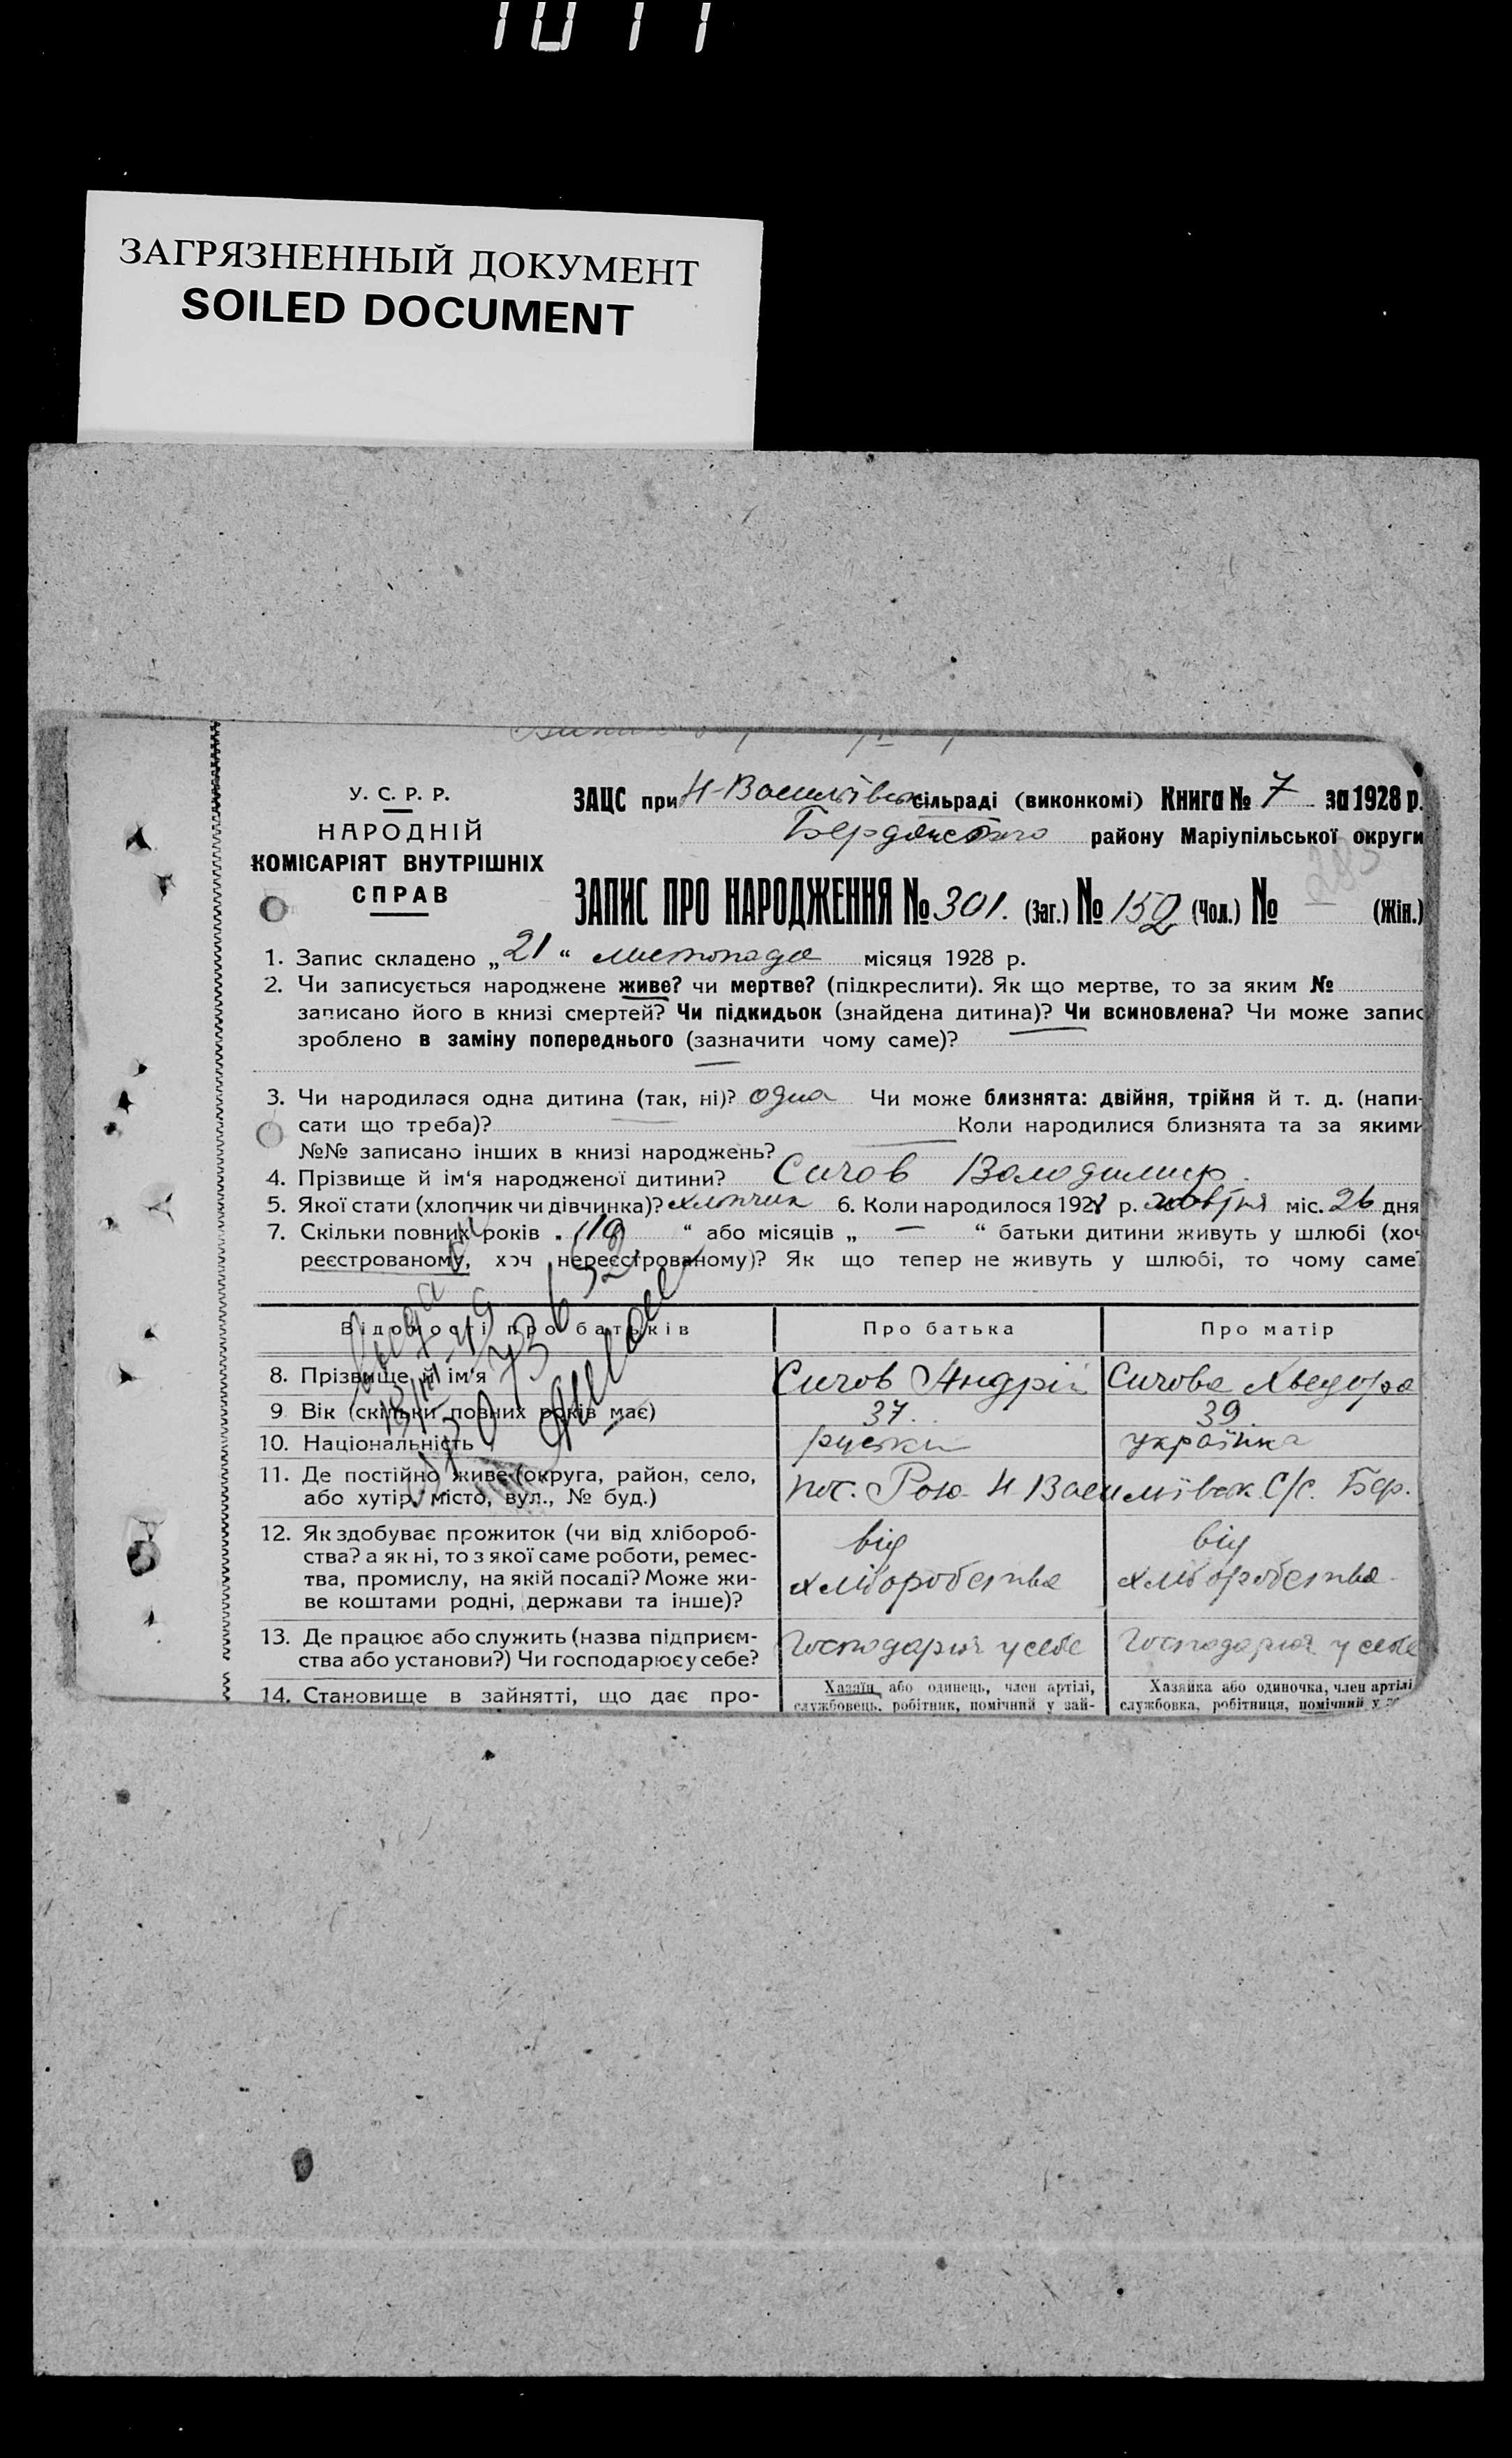 1011
ЗАГРЯЗНЕННЫЙ ДОКУМЕНТ
SOILED DOCUMENT
У. С. Р. Р.
НАРОДНІЙ
КОМІСАРІЯТ ВНУТРІШНІХ
СПРАВ
ЗАЦС при Н-Васильївск сільраді (виконкомі) Книга № 7 за 1928 р.
Бердянського району Маріупільської округи
283
ЗАПИС ПРО НАРОДЖЕННЯ № 301. (Заг.) № 152 (Чол.) № (Жін.)
1. Запис складено „21“ листопада місяця 1928 р.
2. Чи записується народжене живе? чи мертве? (підкреслити). Як що мертве, то за яким №
записано його в книзі смертей? Чи підкидьок (знайдена дитина)? Чи всиновлена? Чи може запис
зроблено в заміну попереднього (зазначити чому саме)?
3. Чи народилася одна дитина (так, ні)? одна Чи може близнята: двійня, трійня й т. д. (напи-
сати що треба)? Коли народилися близнята та за якими
№№ записано інших в книзі народжень?
4. Прізвище й ім‘я народженої дитини? Сичов Володимир.
5. Якої стати (хлопчик чи дівчинка)? хлопчик 6. Коли народилося 1928 р. жовтня міс. 26 дня
7. Скільки повних років „19“ або місяців „—“ батьки дитини живуть у шлюбі (хоч
реєстрованому, хоч нереєстрованому)? Як що тепер не живуть у шлюбі, то чому саме?
Відомості про батьків Про батька Про матір
8. Прізвище й ім‘я Сичов Андрій Сичова Хведора
9 Вік (скільки повних років має) 37. 39.
10. Національність руский українка
11. Де постійно живе (округа, район, село,
або хутір, місто, вул., № буд.) пос. Рою- Н Василівск С/С. Бер.
12. Як здобуває прожиток (чи від хлібороб-
ства? а як ні, то з якої саме роботи, ремес-
тва, промислу, на якій посаді? Може жи-
ве коштами родні, держави та інше)?
від хліборобства
від хліборобства
13. Де працює або служить (назва підприєм-
ства або установи?) Чи господарює у себе?
Господарює у себе Господарює у себе
14. Становище в зайнятті, що дає про-
Хазяїн або одинець, член артілі,
службовець, робітник, помічний у зай-
Хазяйка або одиночка, член артілі
службовка, робітниця, помічний у